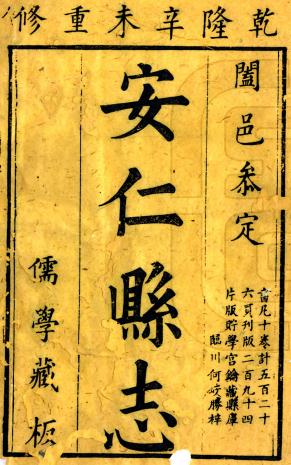 乾隆辛未重修
闔邑叅定
志凡十卷計五百二十
六頁刊版二百九十四
片版貯學宮鑰藏縣庫
臨川何峻勝梓
安仁縣志
儒學藏板